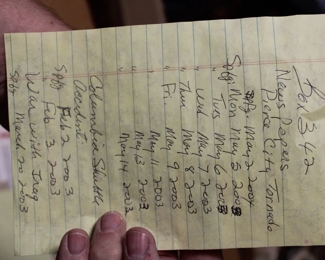 Box 342
News Papers
Pierce City Tornado
May 2 2004
Mon May 5 2003
" Tues May 6 2003
" Wed May 7 2003
" Thur May 8 2003
" Fri. May 9 2003
" May 11 2003
" May 13 2003
" May 14 2003
Columbia Shuttle
Accident
Feb 2 2003
Feb 3 2003
War with Iraq
March 20 2003